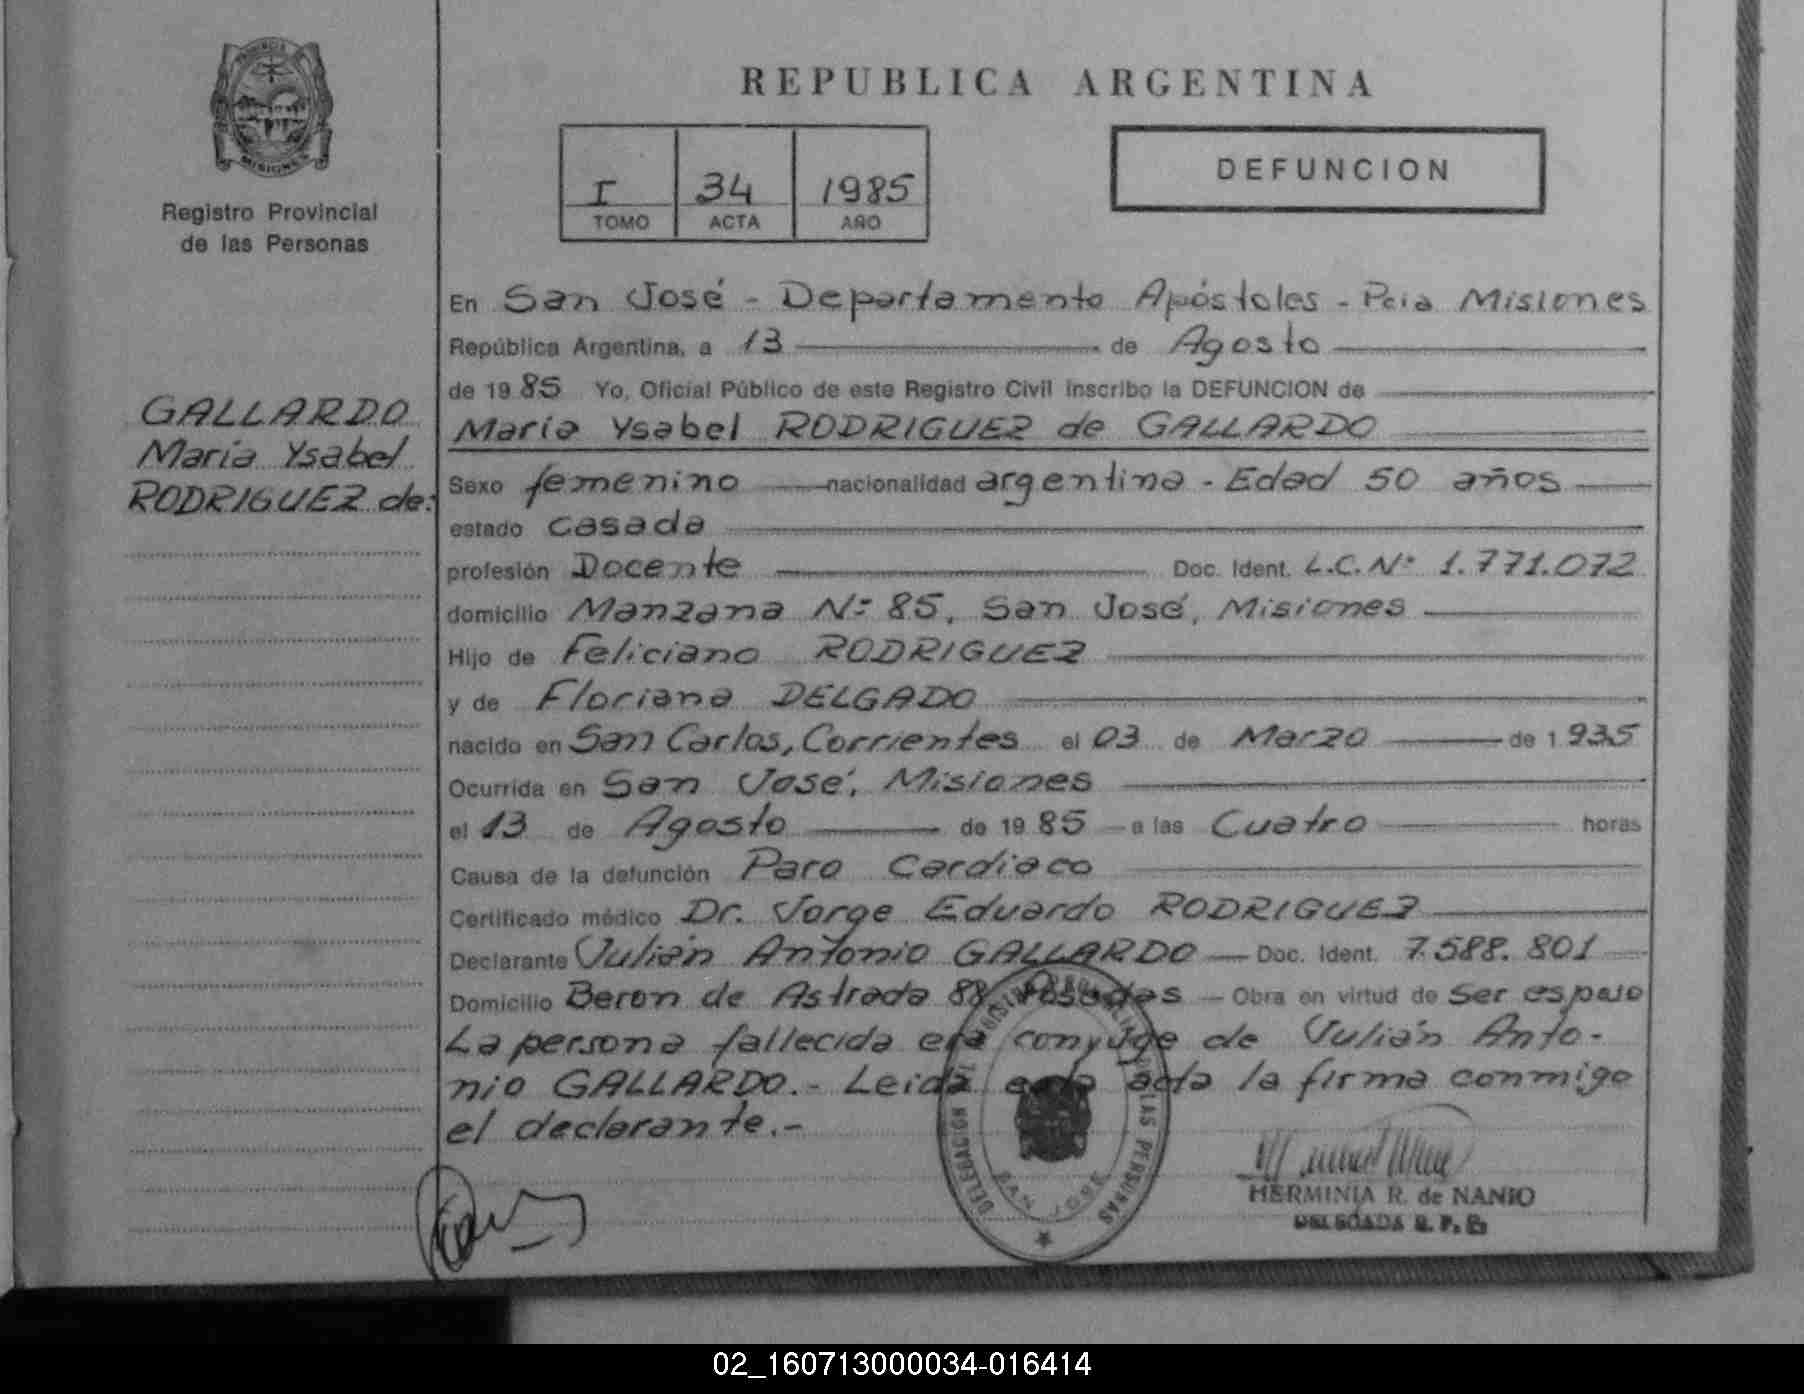 PROVINCIA
MISIONES
Registro Provincial
de las Personas
GALLARDO
María Ysabel
RODRIGUEZ de:
REPUBLICA ARGENTINA
I 34 1985
TOMO ACTA AÑO
DEFUNCION
En San José - Departamento Apóstoles - Pcia Misiones
República Argentina, a 13 de Agosto
de 1985 Yo, Oficial Público de este Registro Civil inscribo la DEFUNCION de
María Ysabel RODRIGUEZ de GALLARDO
Sexo femenino nacionalidad argentina - Edad 50 años
estado casada
profesión Docente Doc. Ident. L.C.Nº 1.771.072
domicilio Manzana Nº 85, San José, Misiones
Hijo de Feliciano RODRIGUEZ
y de Floriana DELGADO
nacido en San Carlos, Corrientes el 03 de Marzo de 1935
Ocurrida en San José, Misiones
el 13 de Agosto de 1985 a las Cuatro horas
Causa de la defunción Paro Cardiaco
Certificado médico Dr. Jorge Eduardo RODRIGUEZ
Declarante Julián Antonio GALLARDO - Doc. Ident. 7.588.801
Domicilio Beron de Astrada 88 Posadas - Obra en virtud de Ser esposo
La persona fallecida era conyuge de Julián Anto-
nio GALLARDO.- Leida esta acta la firma conmigo
el declarante.-
DELEGACION DEL REGISTRO PROVINCIAL DE LAS PERSONAS
SAN JOSE
HERMINIA R. de NANIO
DELEGADA R. P. P.
02_160713000034-016414